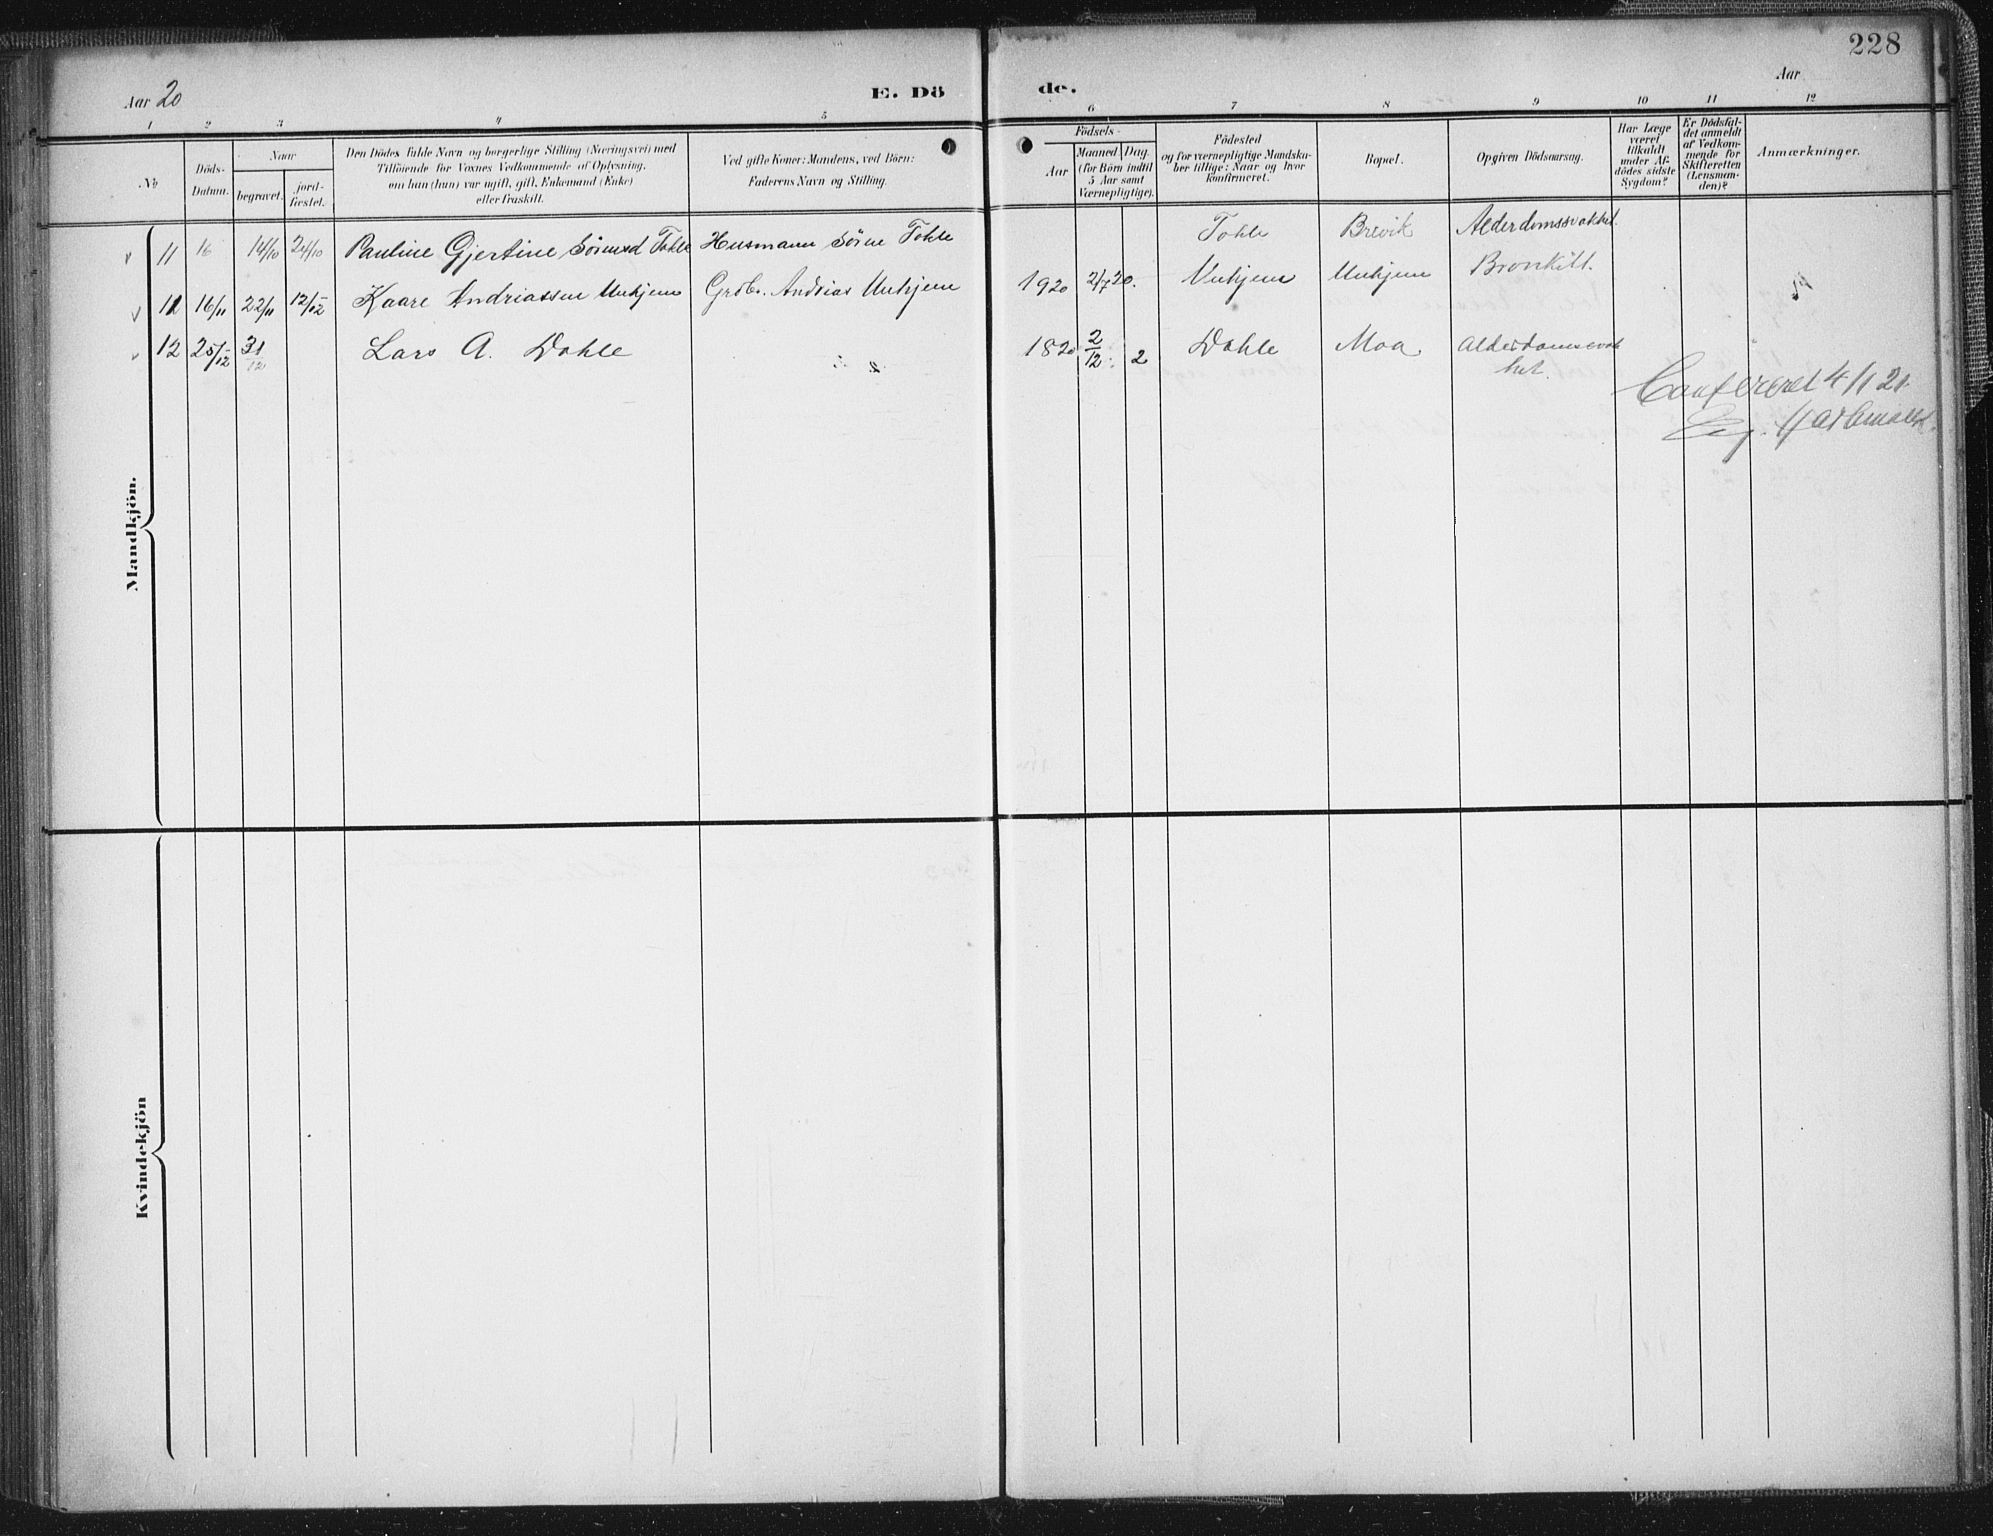 228
Aar 20
E. Dö
de.
Aar
1 2 3 4 5 6 7 8 9 10 11 12
No
Döds-Datum.
Naar
begravet.
jord-fæstet.
Den Dödes fulde Navn og borgerlige Stilling (Næringsvei) med
Tilföiende for Voxnes Vedkommende af Oplysning,
om han (hun) var ugift, gift, Enkemand (Enke)
eller fraskilt.
Ved gifte Koner: Mandens, ved Börn:
Faderens Navn og Stilling.
Födsels-
Aar
Maaned Dag
(for Börn indtil
5 Aar samt
Værnepligtige).
Födested
og for værnepligtige Mandska-
ber tillige: Naar og hvor
konfirmeret.
Bopæl.
Opgiven Dödsaarsag.
Har Læge
været
tilkaldt
under Af-
dödes sidste
Sygdom?
Er Dödsfal-
det anmeldt
af Vedkom-
mende for
Skifteretten
(Lensman-
den)?
Anmærkninger.
11 16 14/10 24/10 Pauline Gjertine Sörensd Tohle Husmann Sörne Tohle Tohle Brevik Alderdomssvakhet.
11 16/11 22/11 12/12 Kaare Andriassen Unhjem Grdbr. Andrias Unhjem 1920 2/7 20. Unhjem Unhjem Bronkitt.
12 25/12 31/12 Lars A. Dahle 1820 2/12 2 Dahle Moa Alderdomssvak
het.
Confereret 4/1 21.
Mandkjön.
Kvindekjön